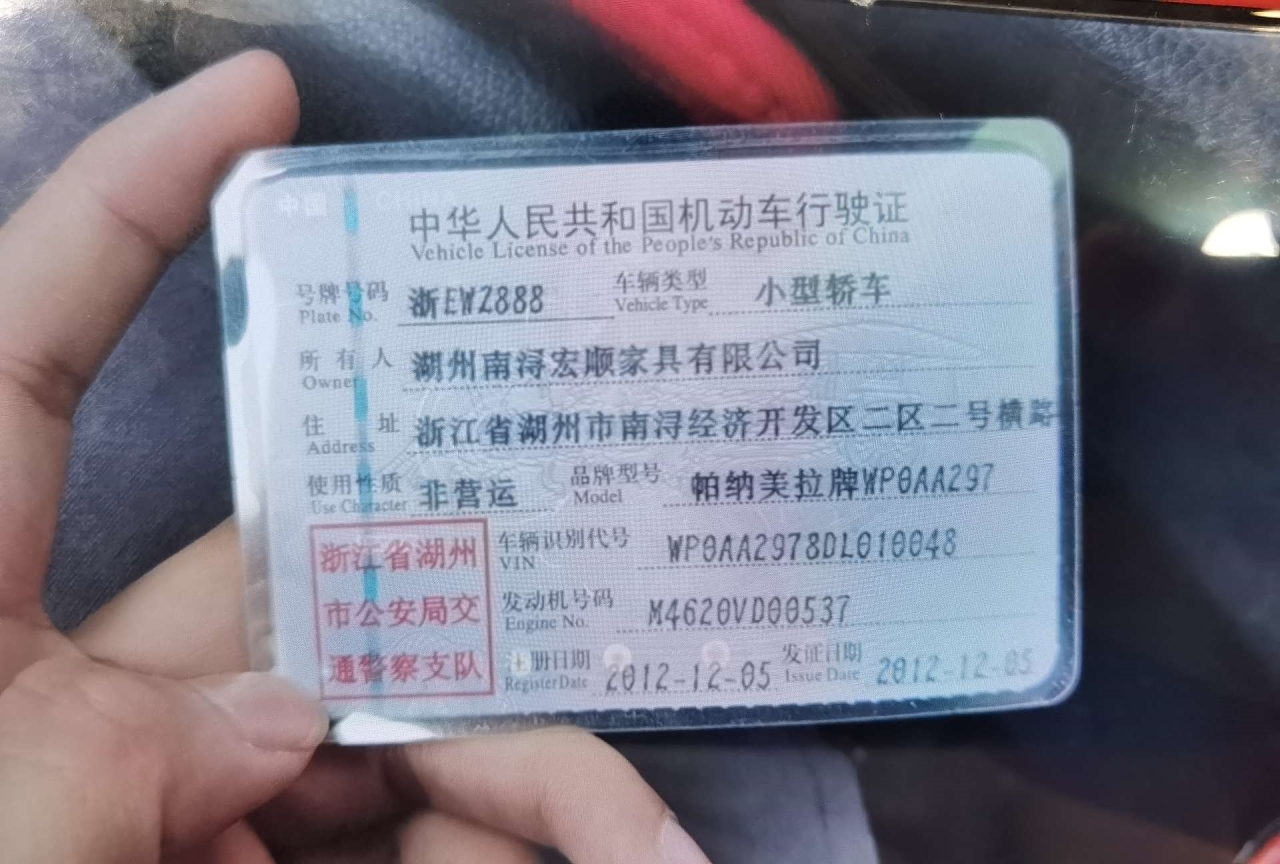 中国 CHINA
中华人民共和国机动车行驶证
Vehicle License of the People's Republic of China
号牌号码 浙EWZ888 车辆类型 小型轿车
Plate No. Vehicle Type
所有人 湖州南浔宏顺家具有限公司
Owner
住址 浙江省湖州市南浔经济开发区二区二号横路
Address
使用性质 非营运 品牌型号 帕纳美拉牌WP0AA297
Use Character Model
浙江省湖州
市公安局交
通警察支队
车辆识别代号 WP0AA2978DL010048
VIN
发动机号码 M4620VD00537
Engine No.
注册日期 2012-12-05 发证日期 2012-12-05
Register Date Issue Date